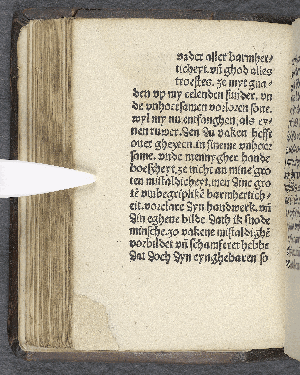 vader aller barmher⸗
ticheyt. vñ ghod alles
troestes. ze my gna⸗
den vp my eelenden sunder. vn
de vnhoersamen vorloren sone.
wyl my nu entfanghen, als ey⸗
nen ruwer. Den du vaken hefst
ouer ghezeen. in sineme vnhoer
same. vnde mennygher hande
boescheyt. ze nicht an mine gro
ten missdicheyt, men dine gro
tē vnbegriplikē barmherticch⸗
eit. vorclare dyn handwerk. vñ
din eghene bilde Dath ik snode
minsche. zo vakene misdaldighē
vorbildet vñ schamferet hebbe
Dat doch dyn eynghebaren so